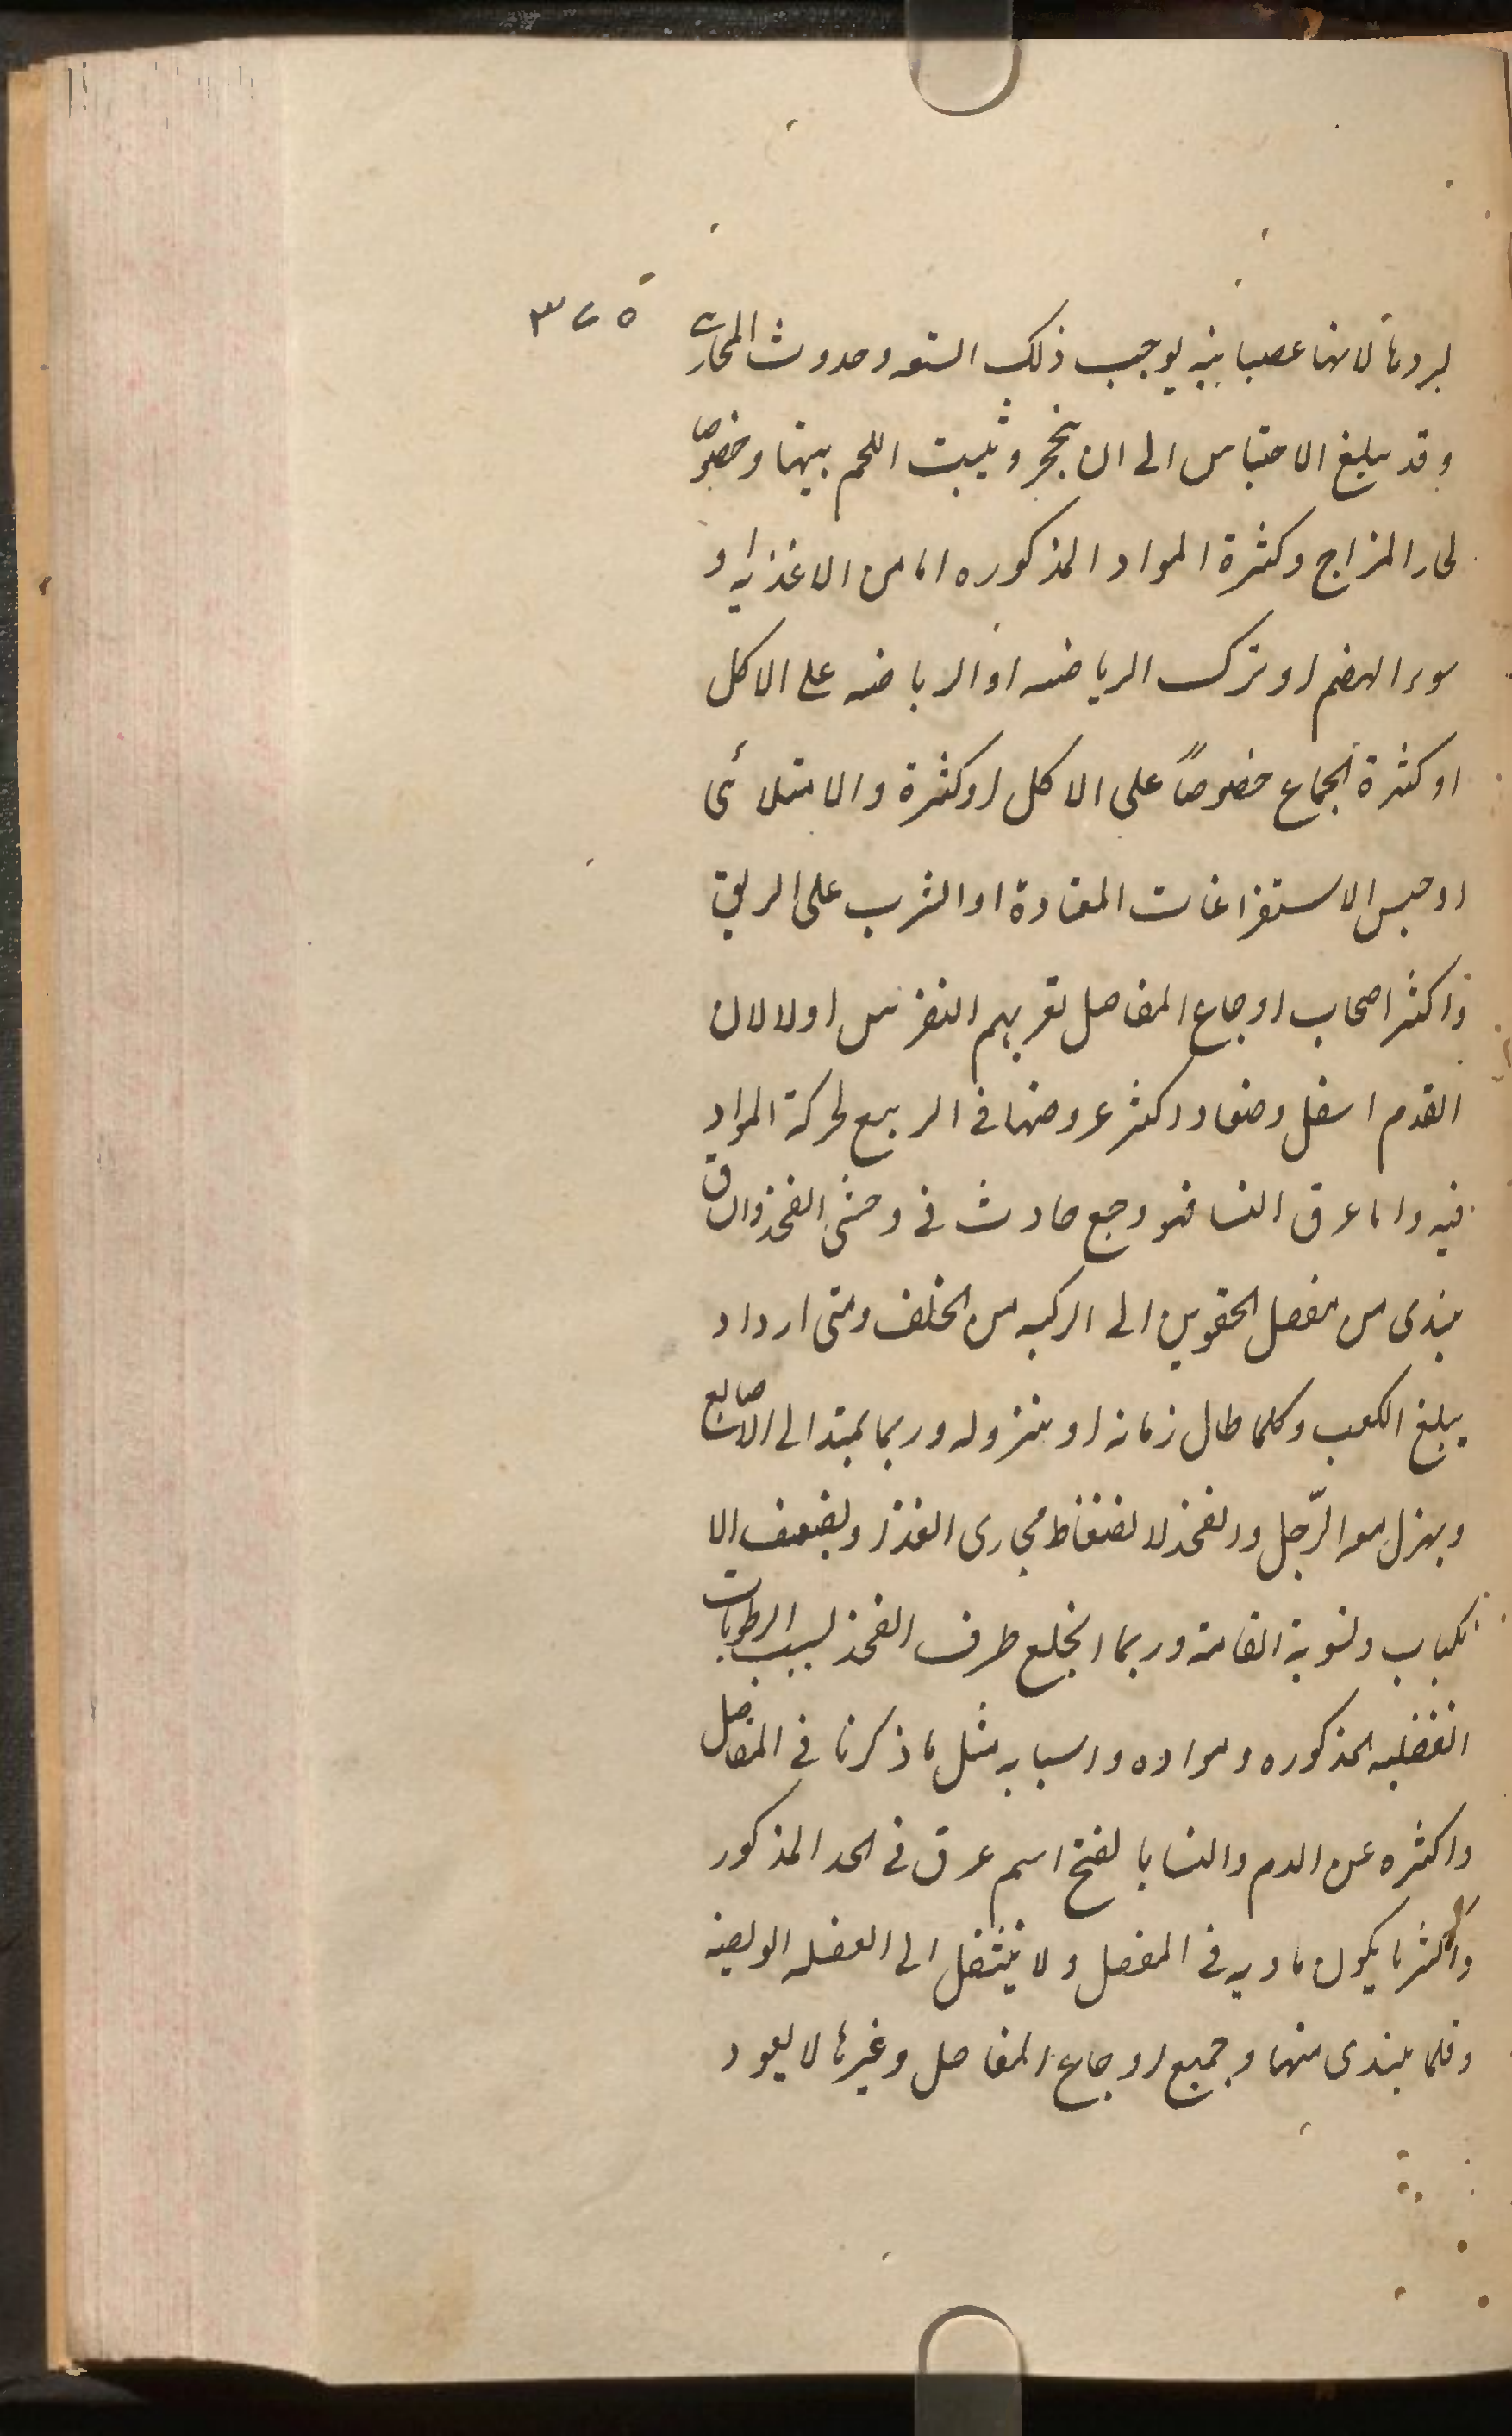 ٣٧٥
لبردها لانها عصبانيه يوجب ذلك السعه وحدوث المجارى
وقد يبلغ الاحتباس الى ان يتحجر وينبت اللحم بينها وخصوصا
لحار المزاج وكثرة المواد المذكوره اما من الاغذيه او
سوء الهضم او ترك الرياضه او الرياضه على الاكل
او كثرة الجماع خصوصاً على الاكل او كثرة والامتلائى
او حبس الاستفراغات المعتادة او الشرب على الريق
واكثر اصحاب اوجاع المفاصل تعريهم النقرس اولا لان
القدم اسفل وضعا واكثر عروضها فى الربيع لحركة المواد
فيه واما عرق النسا فهو وجع حادث فى وحشى الفخذ والساق
يبتدى من مفصل الحقوين الى الركبه من الخلف ومتى ازداد
يبلغ الكعب وكلما طال زمانه زاد نزوله وربما يمتد الى الاصابع
ويهزل معه الرّجل والفخذ لانضغاط مجارى الغذا ويضعف الا
نكباب وتسوية القامة وربما انخلع طرف الفخذ لسبب الرطوبات
الفضليه المذكوره ومواده واسبابه مثل ما ذكرنا فى المفاصل
واكثره عن الدم والنسا بالفتح اسم عرق فى الحد المذكور
واكثر ما يكون مادته فى المفصل ولا ينتقل الى العضله الوليصه
وقلما يبتدى منها وجميع اوجاع المفاصل وغيرها لا يعود